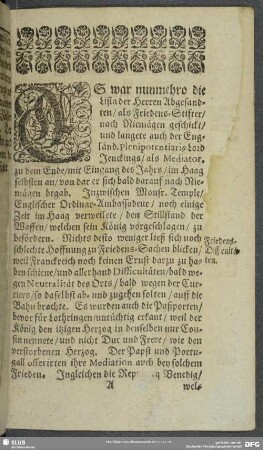 ES war nunmehro die
Lista der Herren Abgesand-
ten / als Friedens-Stifter /
nach Niemägen geschickt /
und langete auch der Eng-
länd. Plenipotentiario Lord
Jenckings / als Mediator,
zu dem Ende / mit Eingang des Jahrs / im Haag
selbsten an / von dar er sich bald darauf nach Nie-
mägen begab. Inzwischen Monsr. Temple /
Englischer Ordinar-Ambassadeur / noch einige
Zeit im Haag verweilete / den Stillstand der
Waffen / welchen sein König vorgeschlagen / zu
befördern. Nichts desto weniger ließ sich noch
schlechte Hoffnung zu Friedens-Sachen blicken /
weil Franckreich noch keinen Ernst darzu zu ha-
ben schiene / und allerhand Difficultäten / bald we-
gen Neutralität des Orts / bald wegen der Cur-
rirer / so daselbst ab- und zugehen solten / auff die
Bahn brachte. Es wurden auch die Paßporten /
bevor für Lothringen / untüchtig erkant / weil der
König den itzigen Herzog in denselben nur Cou-
sin nennete / und nicht Duc und Frere / wie den
verstorbenen Herzog. Der Papst und Portu-
gall offerirten ihre Mediation auch bey solchem
Frieden. Ingleichen die Venedig /
A wel-
Friedens-
Difficulte-
ten.
SLUB
DFG